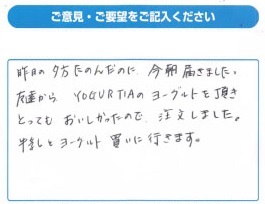 ご意見・ご要望をご記入ください
昨日の夕方たのんだのに、今朝届きました。
友達から YOGURTIAのヨーグルトを頂き
とっても おいしかったので、注文しました。
早速 ヨーグルト 買いに行きます。